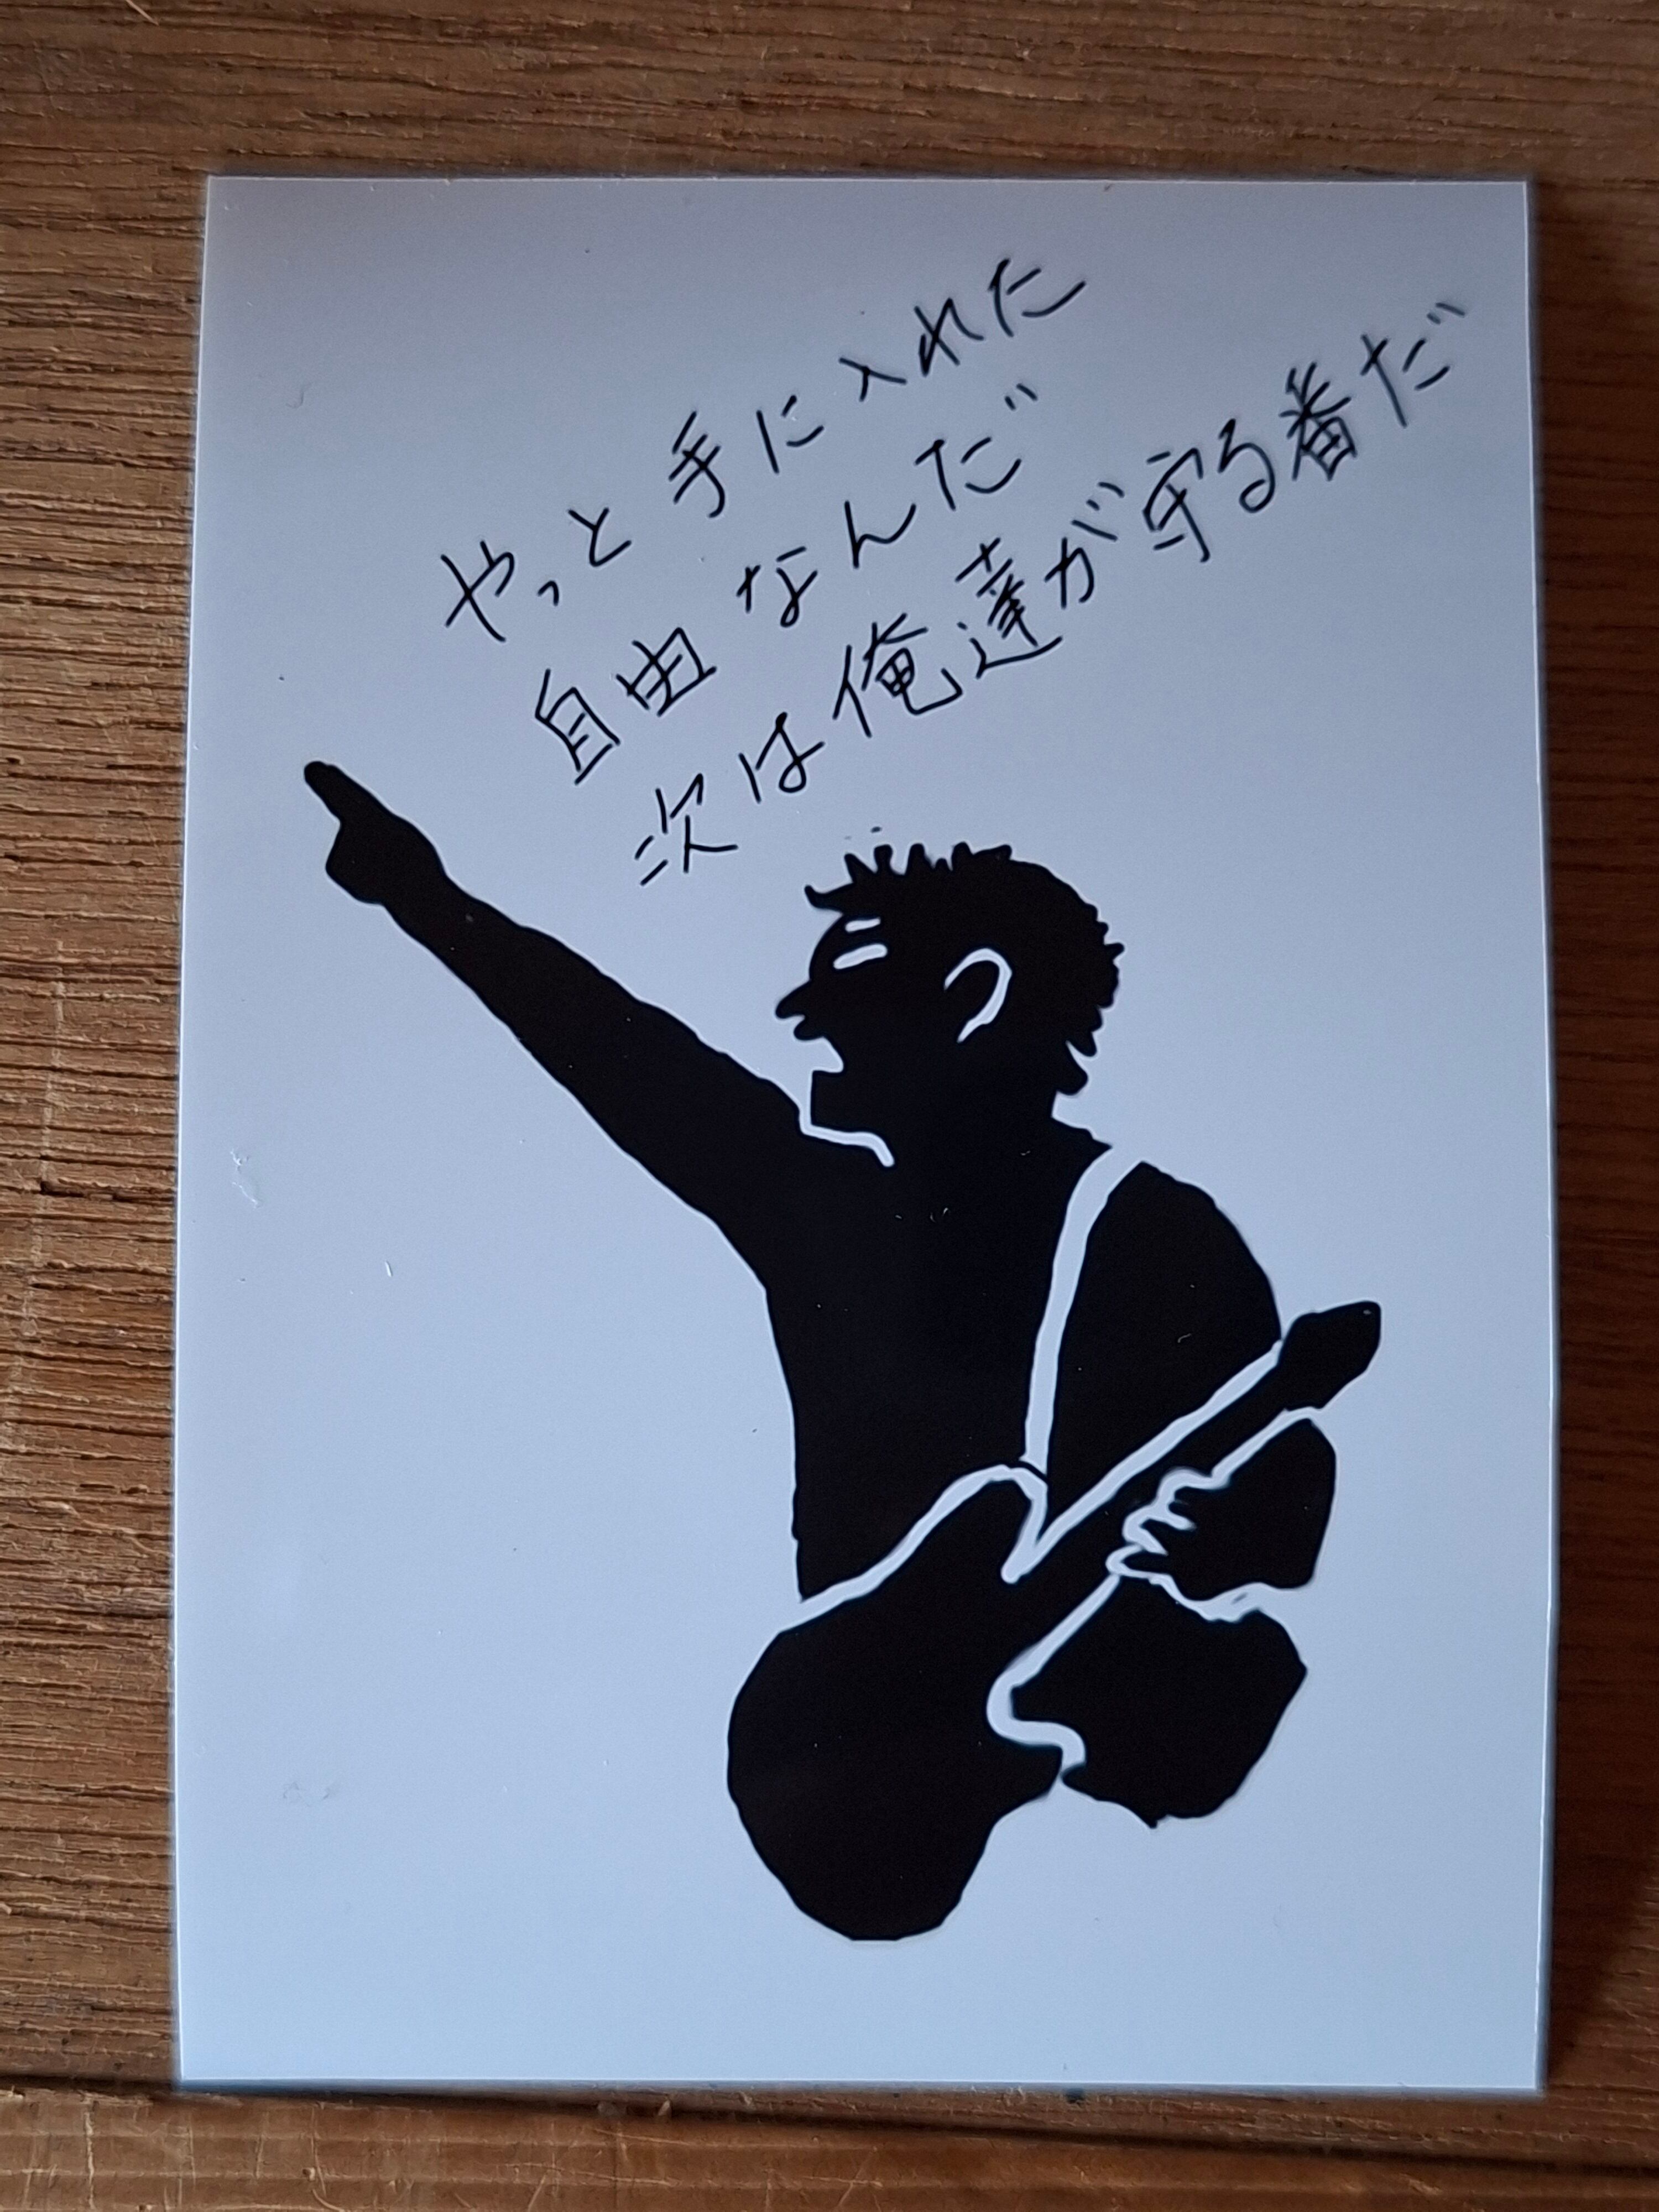 やっと手に入れた
自由なんだ
次は俺達が守る番だ